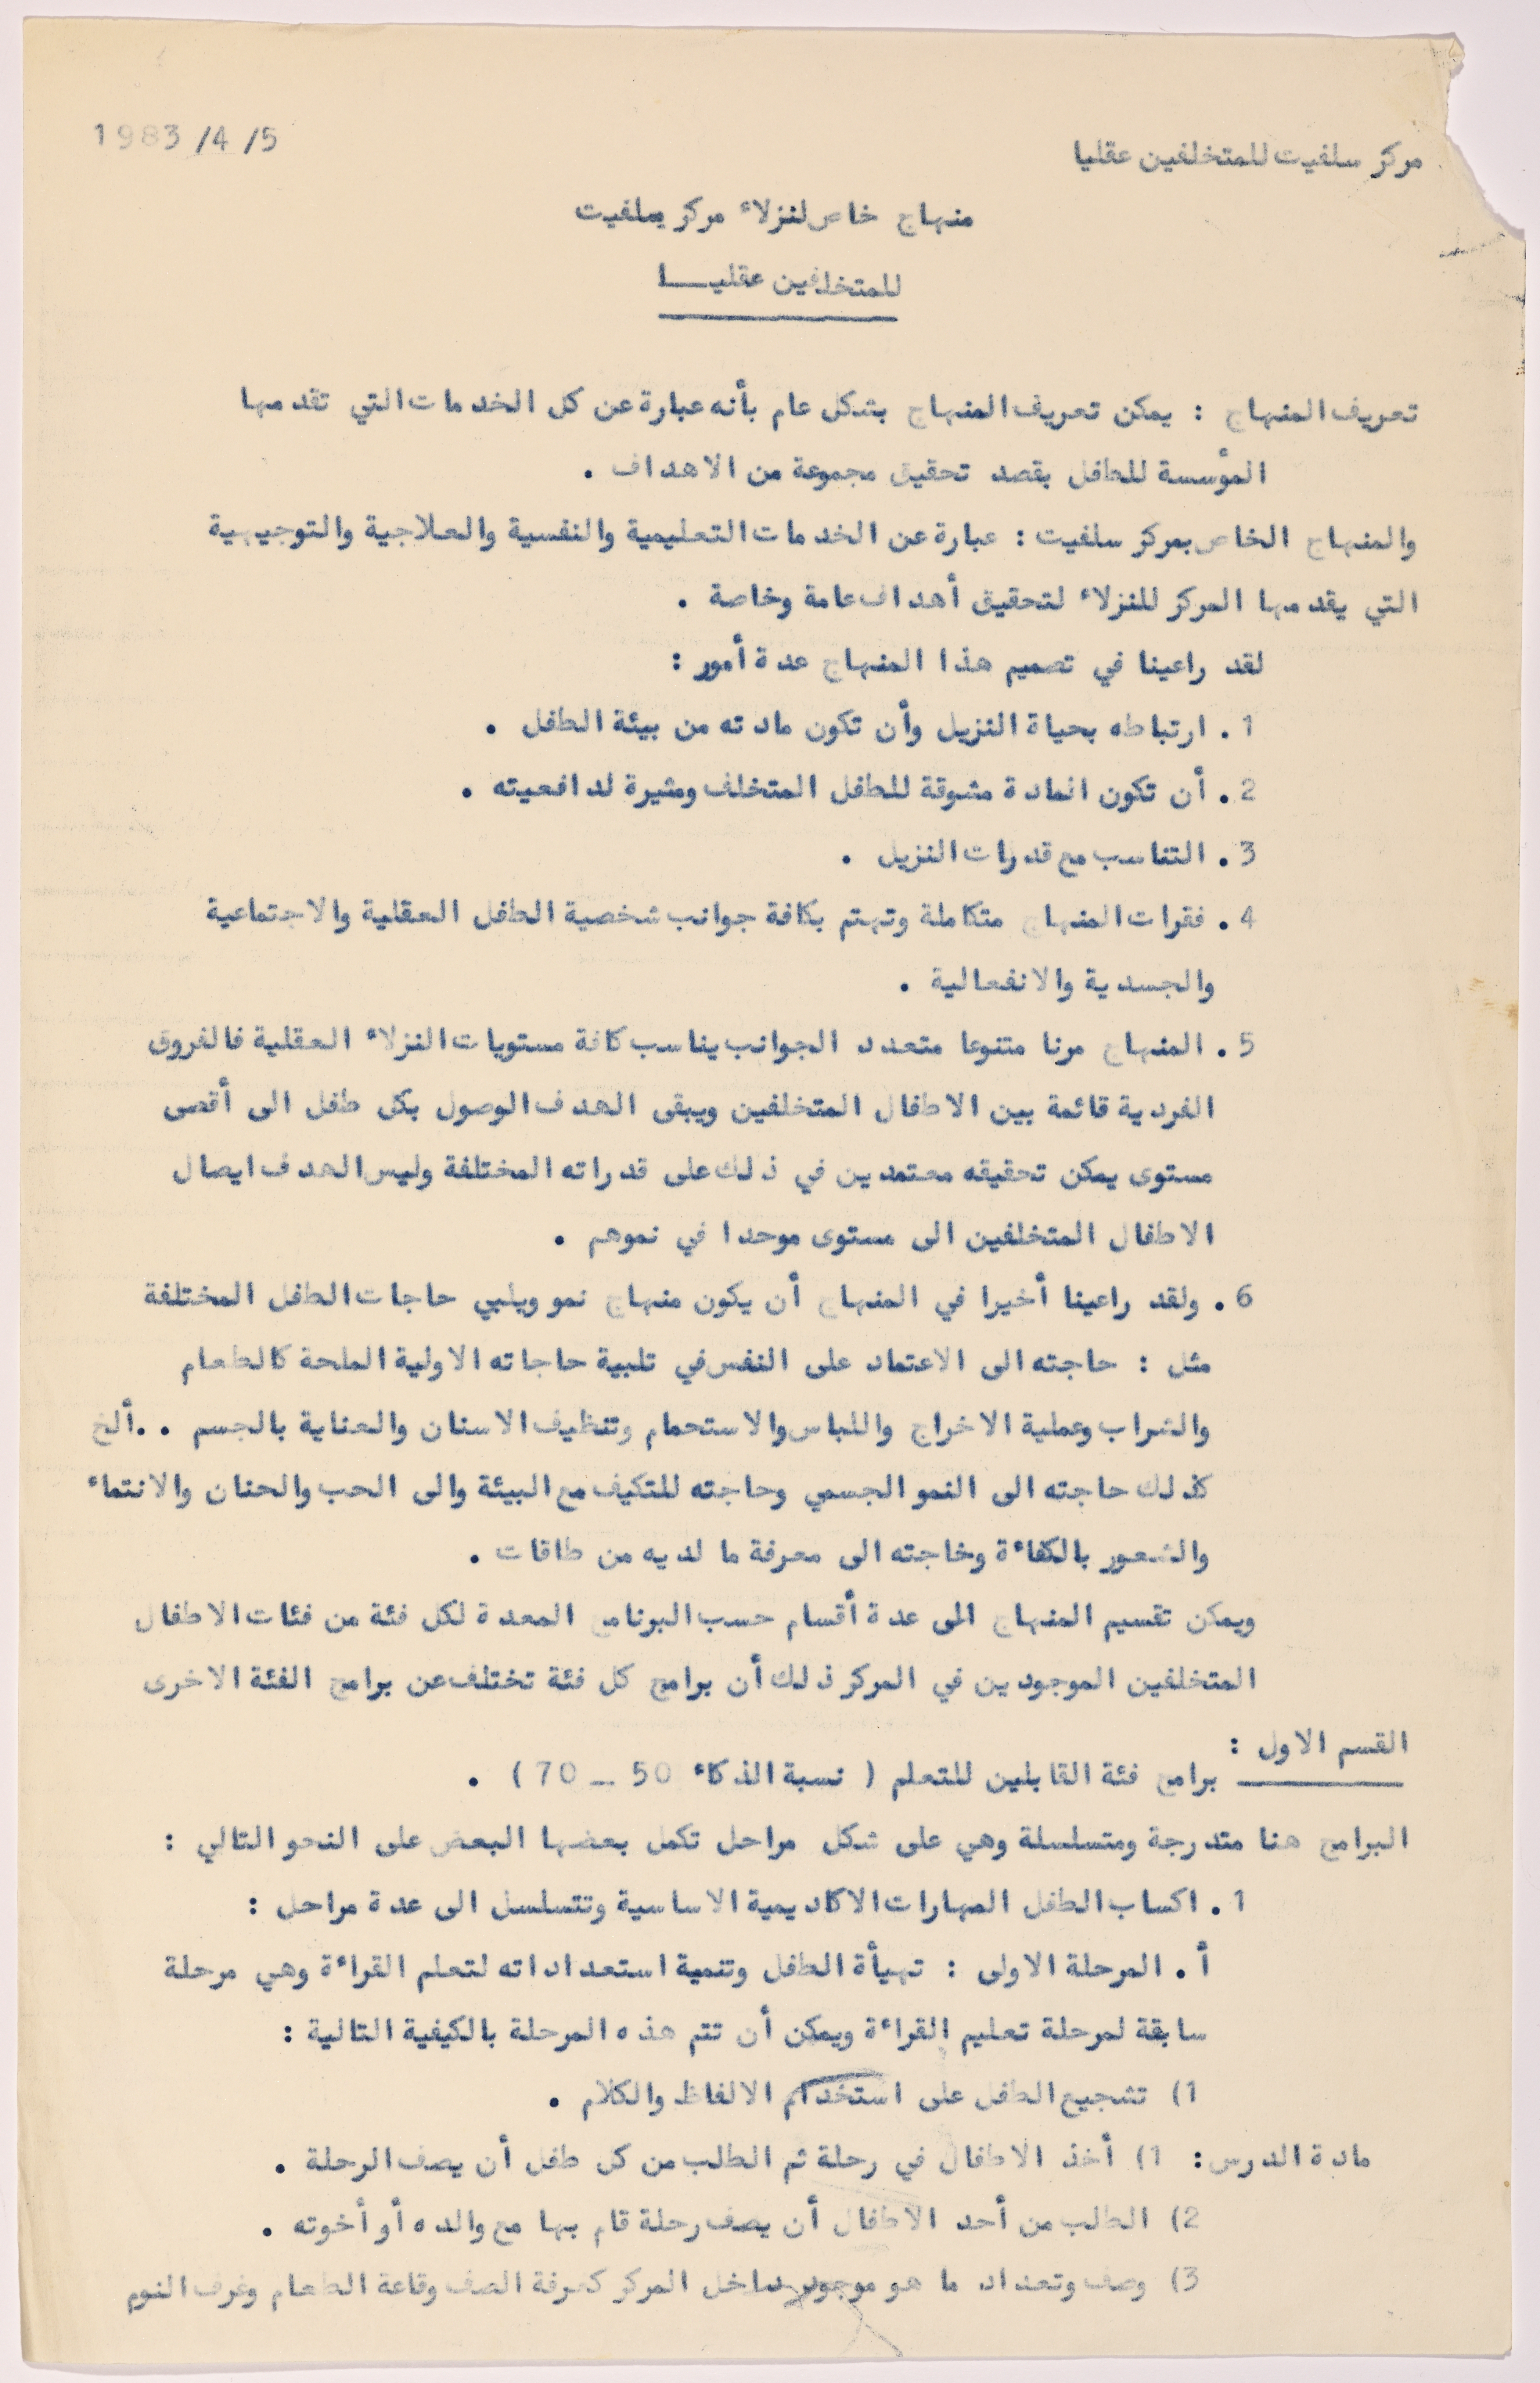 1983/4/5
مركز سلفيت للمتخلفين عقليا
منهاج خاص لنزلاء مركز سلفيت
للمتخلفين عقليـــا
تعريف المنهاج : يمكن تعريف المنهاج بشكل عام بأنه عبارة عن كل الخدمات التي تقدمها
المؤسسة للطفل بقصد تحقيق مجموعة من الاهداف .
والمنهاج الخاص بمركز سلفيت : عبارة عن الخدمات التعليمية والنفسية والعلاجية والتوجيهية
التي يقدمها المركز للنزلاء لتحقيق أهداف عامة وخاصة .
لقد راعينا في تصميم هذا المنهاج عدة أمور :
1 . ارتباطه بحياة النزيل وأن تكون مادته من بيئة الطفل .
2 . أن تكون المادة مشوقة للطفل المتخلف ومثيرة لدافعيته .
3 . التناسب مع قدرات النزيل .
4 . فقرات المنهاج متكاملة وتهتم بكافة جوانب شخصية الطفل العقلية والاجتماعية
والجسدية والانفعالية .
5 . المنهاج مرنا متنوعا متعدد الجوانب يناسب كافة مستويات النزلاء العقلية فالفروق
الفردية قائمة بين الاطفال المتخلفين ويبقى الهدف الوصول بكل طفل الى أقصى
مستوى يمكن تحقيقه معتمدين في ذلك على قدراته المختلفة وليس الهدف ايصال
الاطفال المتخلفين الى مستوى موحدا في نموهم .
6 . ولقد راعينا أخيرا في المنهاج أن يكون منهاج نمو ويلبي حاجات الطفل المختلفة
مثل : حاجته الى الاعتماد على النفس في تلبية حاجاته الاولية الملحة كالطعام
والشراب وعملية الاخراج واللباس والاستحمام وتنظيف الاسنان والعناية بالجسم . .ألخ
كذلك حاجته الى النمو الجسمي وحاجته للتكيف مع البيئة والى الحب والحنان والانتماء
والشعور بالكفاءة وخاجته الى معرفة ما لديه من طاقات .
ويمكن تقسيم المنهاج الى عدة أقسام حسب البرنامج المعدة لكل فئة من فئات الاطفال
المتخلفين الموجودين في المركز ذلك أن برامج كل فئة تختلف عن برامج الفئة الاخرى
القسم الاول :
برامج فئة القابلين للتعلم ( نسبة الذكاء 50 _ 70 ) .
البرامج هنا متدرجة ومتسلسلة وهي على شكل مراحل تكمل بعضها البعض على النحو التالي :
1 . اكساب الطفل المهارات الاكاديمية الاساسية وتتسلسل الى عدة مراحل :
أ . المرحلة الاولى : تهيأة الطفل وتنمية استعداداته لتعلم القراءة وهي مرحلة
سابقة لمرحلة تعليم القراءة ويمكن أن تتم هذه المرحلة بالكيفية التالية :
1) تشجيع الطفل على استخدام الالفاظ والكلام .
مادة الدرس : 1) أخذ الاطفال في رحلة ثم الطلب من كل طفل أن يصف الرحلة .
2) الطلب من أحد الاطفال أن يصف رحلة قام بها مع والده أو أخوته .
3) وصف وتعداد ما هو موجود داخل المركز كغرفة الصف وقاعة الطعام وغرف النوم